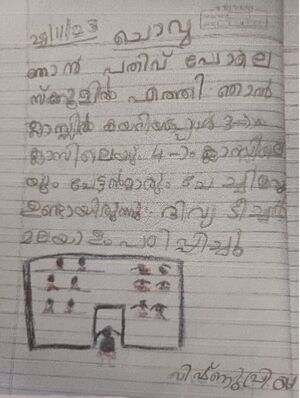 28/11/23 ചൊവ്വ
ഞാൻ പതിവ് പോലെ
സ്ക്കൂളിൽ എത്തി ഞാൻ
ക്ലാസ്സിൽ കയറിയപ്പോൾ 3-ാം
ക്ലാസിലെയും 4-ാം ക്ലാസ്സിലെ
യും ചേട്ടൻമാരും ചേച്ചിമാരും
ഉണ്ടായിരുന്നു. ദിവ്യ ടീച്ചർ
മലയാളം പഠിപ്പിച്ചു
വിഷ്ണുപ്രിയ